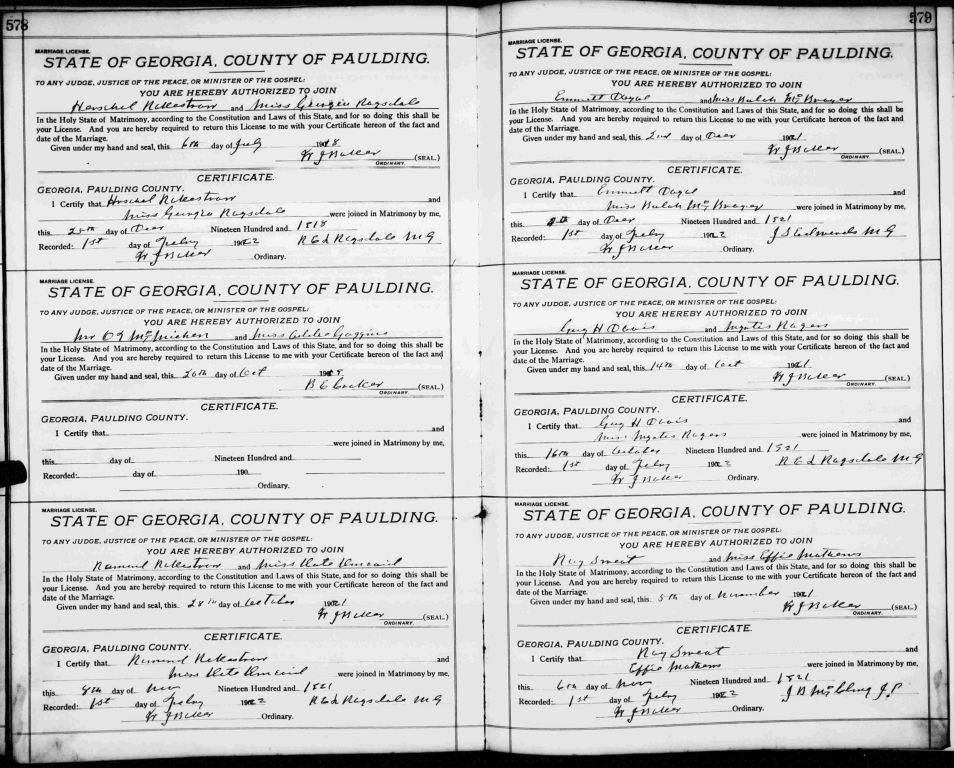 578
MARRIAGE LICENSE.
STATE OF GEORGIA, COUNTY OF PAULDING.
TO ANY JUDGE, JUSTICE OF THE PEACE, OR MINISTER OF THE GOSPEL:
YOU ARE HEREBY AUTHORIZED TO JOIN
Herschel and Miss Georgia Ragsdale
In the Holy State of Matrimony, according to the Constitution and Laws of this State, and for so doing this shall be
your License. And you are hereby required to return this License to me with your Certificate hereon of the fact and
date of the Marriage.
Given under my hand and seal, this 6th day of July 1918
(SEAL.)
ORDINARY.
CERTIFICATE.
GEORGIA, PAULDING COUNTY.
I Certify that Herschel and
Miss Georgia Ragsdale were joined in Matrimony by me,
this day of Nineteen Hundred and 1918
Recorded: 1st day of Feby 1922 Ragsdale M G
Ordinary.
MARRIAGE LICENSE.
STATE OF GEORGIA, COUNTY OF PAULDING.
TO ANY JUDGE, JUSTICE OF THE PEACE, OR MINISTER OF THE GOSPEL:
YOU ARE HEREBY AUTHORIZED TO JOIN
Mr and Miss
In the Holy State of Matrimony, according to the Constitution and Laws of this State, and for so doing this shall be
your License. And you are hereby required to return this License to me with your Certificate hereon of the fact and
date of the Marriage.
Given under my hand and seal, this 20th day of Oct
(SEAL.)
ORDINARY.
CERTIFICATE.
GEORGIA, PAULDING COUNTY.
I Certify that and
were joined in Matrimony by me,
this day of Nineteen Hundred and
Recorded: day of 190
Ordinary.
MARRIAGE LICENSE.
STATE OF GEORGIA, COUNTY OF PAULDING.
TO ANY JUDGE, JUSTICE OF THE PEACE, OR MINISTER OF THE GOSPEL:
YOU ARE HEREBY AUTHORIZED TO JOIN
and Miss
In the Holy State of Matrimony, according to the Constitution and Laws of this State, and for so doing this shall be
your License. And you are hereby required to return this License to me with your Certificate hereon of the fact and
date of the Marriage.
Given under my hand and seal, this 28th day of October 1921
(SEAL.)
ORDINARY.
CERTIFICATE.
GEORGIA, PAULDING COUNTY.
I Certify that and
Miss were joined in Matrimony by me,
this 8th day of Nov Nineteen Hundred and 1921
Recorded: 1st day of Feby 1922 Ragsdale M G
Ordinary.
579
MARRIAGE LICENSE.
STATE OF GEORGIA, COUNTY OF PAULDING.
TO ANY JUDGE, JUSTICE OF THE PEACE, OR MINISTER OF THE GOSPEL:
YOU ARE HEREBY AUTHORIZED TO JOIN
Emmett and Miss Bulah
In the Holy State of Matrimony, according to the Constitution and Laws of this State, and for so doing this shall be
your License. And you are hereby required to return this License to me with your Certificate hereon of the fact and
date of the Marriage.
Given under my hand and seal, this 2nd day of 1921
(SEAL.)
ORDINARY.
CERTIFICATE.
GEORGIA, PAULDING COUNTY.
I Certify that Emmett and
Miss Bulah were joined in Matrimony by me,
this day of Nineteen Hundred and 1921
Recorded: 1st day of Feby 1922 J S Edwards M G
Ordinary.
MARRIAGE LICENSE.
STATE OF GEORGIA, COUNTY OF PAULDING.
TO ANY JUDGE, JUSTICE OF THE PEACE, OR MINISTER OF THE GOSPEL:
YOU ARE HEREBY AUTHORIZED TO JOIN
Guy H Davis and Rogers
In the Holy State of Matrimony, according to the Constitution and Laws of this State, and for so doing this shall be
your License. And you are hereby required to return this License to me with your Certificate hereon of the fact and
date of the Marriage.
Given under my hand and seal, this 14th day of Oct 1921
(SEAL.)
ORDINARY.
CERTIFICATE.
GEORGIA, PAULDING COUNTY.
I Certify that Guy H Davis and
Miss Rogers were joined in Matrimony by me,
this 16th day of October Nineteen Hundred and 1921
Recorded: 1st day of Feby 1922 Ragsdale M G
Ordinary.
MARRIAGE LICENSE.
STATE OF GEORGIA, COUNTY OF PAULDING.
TO ANY JUDGE, JUSTICE OF THE PEACE, OR MINISTER OF THE GOSPEL:
YOU ARE HEREBY AUTHORIZED TO JOIN
Roy Sweat and Miss Effie Mathews
In the Holy State of Matrimony, according to the Constitution and Laws of this State, and for so doing this shall be
your License. And you are hereby required to return this License to me with your Certificate hereon of the fact and
date of the Marriage.
Given under my hand and seal, this 5th day of November 1921
(SEAL.)
ORDINARY.
CERTIFICATE.
GEORGIA, PAULDING COUNTY.
I Certify that Roy Sweat and
Effie Mathews were joined in Matrimony by me,
this 6th day of Nov Nineteen Hundred and 1921
Recorded: 1st day of Feby 1922 J P
Ordinary.